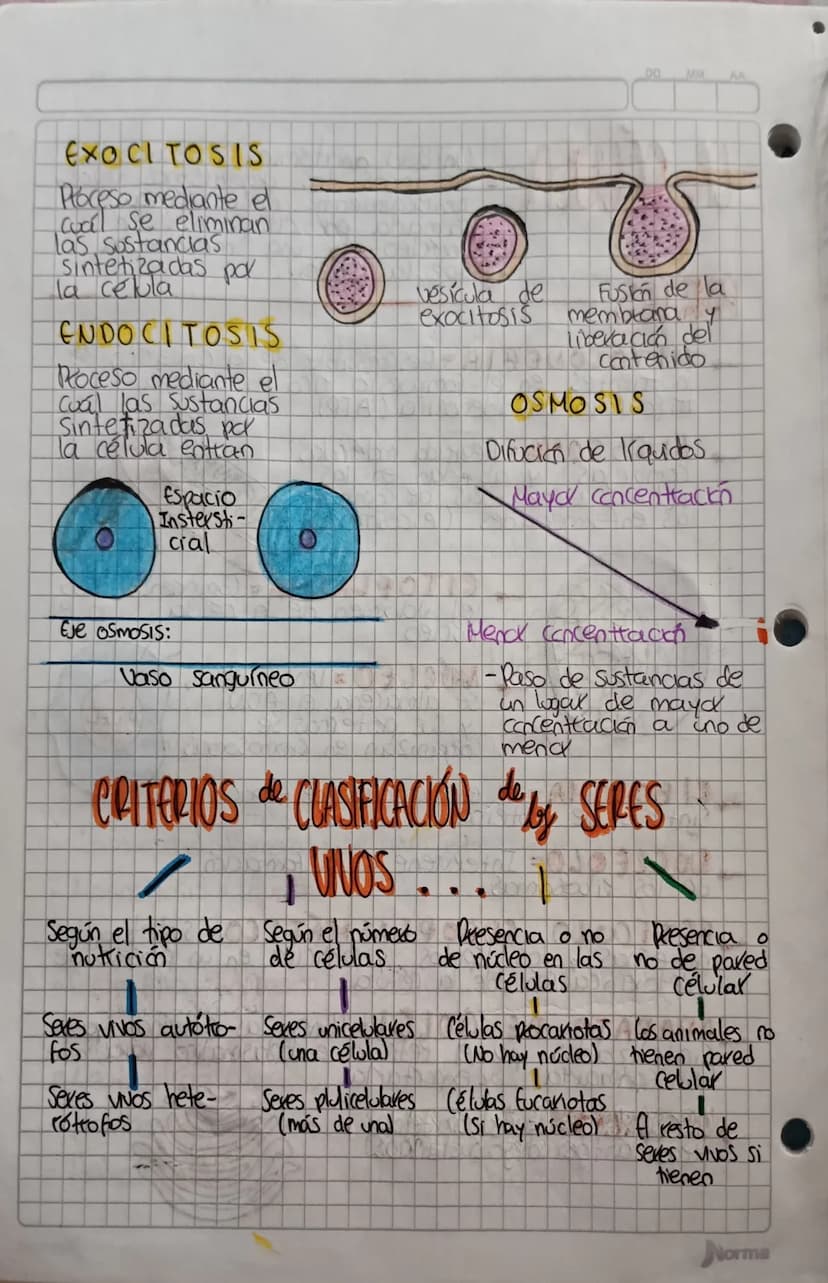 DD MM AA
EXOCITOSIS
Proceso mediante el
cuál se eliminan
las sustancias
sintetizadas por
la célula
vesícula de
exocitosis
Fusión de la
membrana y
liberación del
contenido
ENDOCITOSIS
Proceso mediante el
cuál las sustancias
sintetizadas por
la célula entran
OSMOSIS
Difución de líquidos
Mayor concentración
Menor concentración
-Paso de sustancias de
un lugar de mayor
concentración a uno de
menor
Espacio
Instersti-
cial
Eje osmosis:
Vaso sanguíneo
CRITERIOS de CLASIFICACIÓN de los SERES
VIVOS ...
Según el tipo de
nutrición
Seres vivos autótro-
fos
Seres vivos hete-
rótrofos
Según el número
de células
Seres unicelulares
(una célula)
Seres pluricelulares
(más de una)
Presencia o no
de núcleo en las
células
Células procariotas
(No hay núcleo)
Células Eucariotas
(Si hay núcleo)
Presencia o
no de pared
célular
Los animales no
tienen pared
celular
El resto de
seres vivos si
tienen
Norma